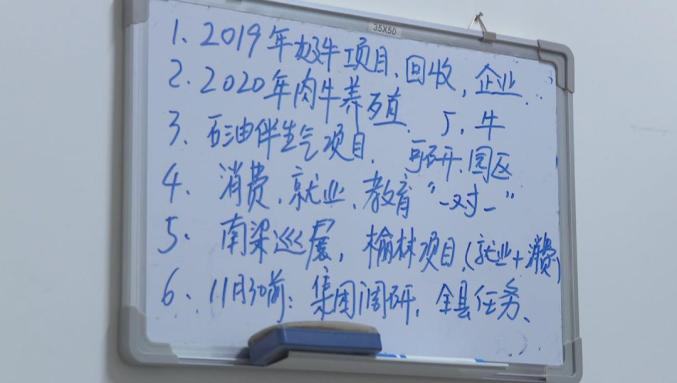 35X50
1、2019年奶牛项目、回收、企业
2、2020年肉牛养殖、厂、牛
3、石油伴生气项目、可研、园区
4、消费、就业、教育“一对一”
5、南梁巡展，榆林项目（就业+消费）
6、11月30前：集团调研，全县任务、